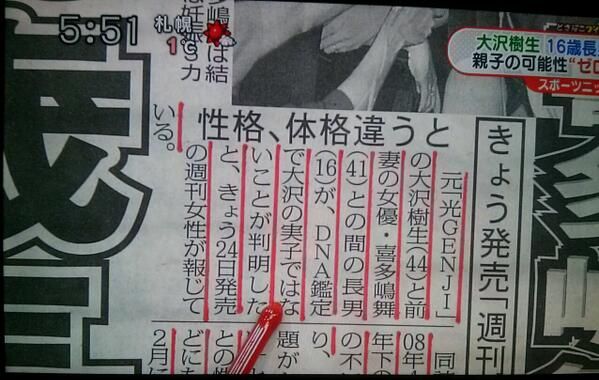 5:51
札幌
1℃
大沢樹生 16歳長
親子の可能性“ゼロ
スポーツニッ
性格、体格違うと
きょう発売「週刊
元「光GENJI」
の大沢樹生(44)と前
妻の女優・喜多嶋舞
(41)との間の長男
(16)が、DNA鑑定
で大沢の実子ではな
いことが判明した
と、きょう24日発売
の週刊女性が報じて
いる。
08年
年下の
の不
り、
題が
との性
どにた
2月に